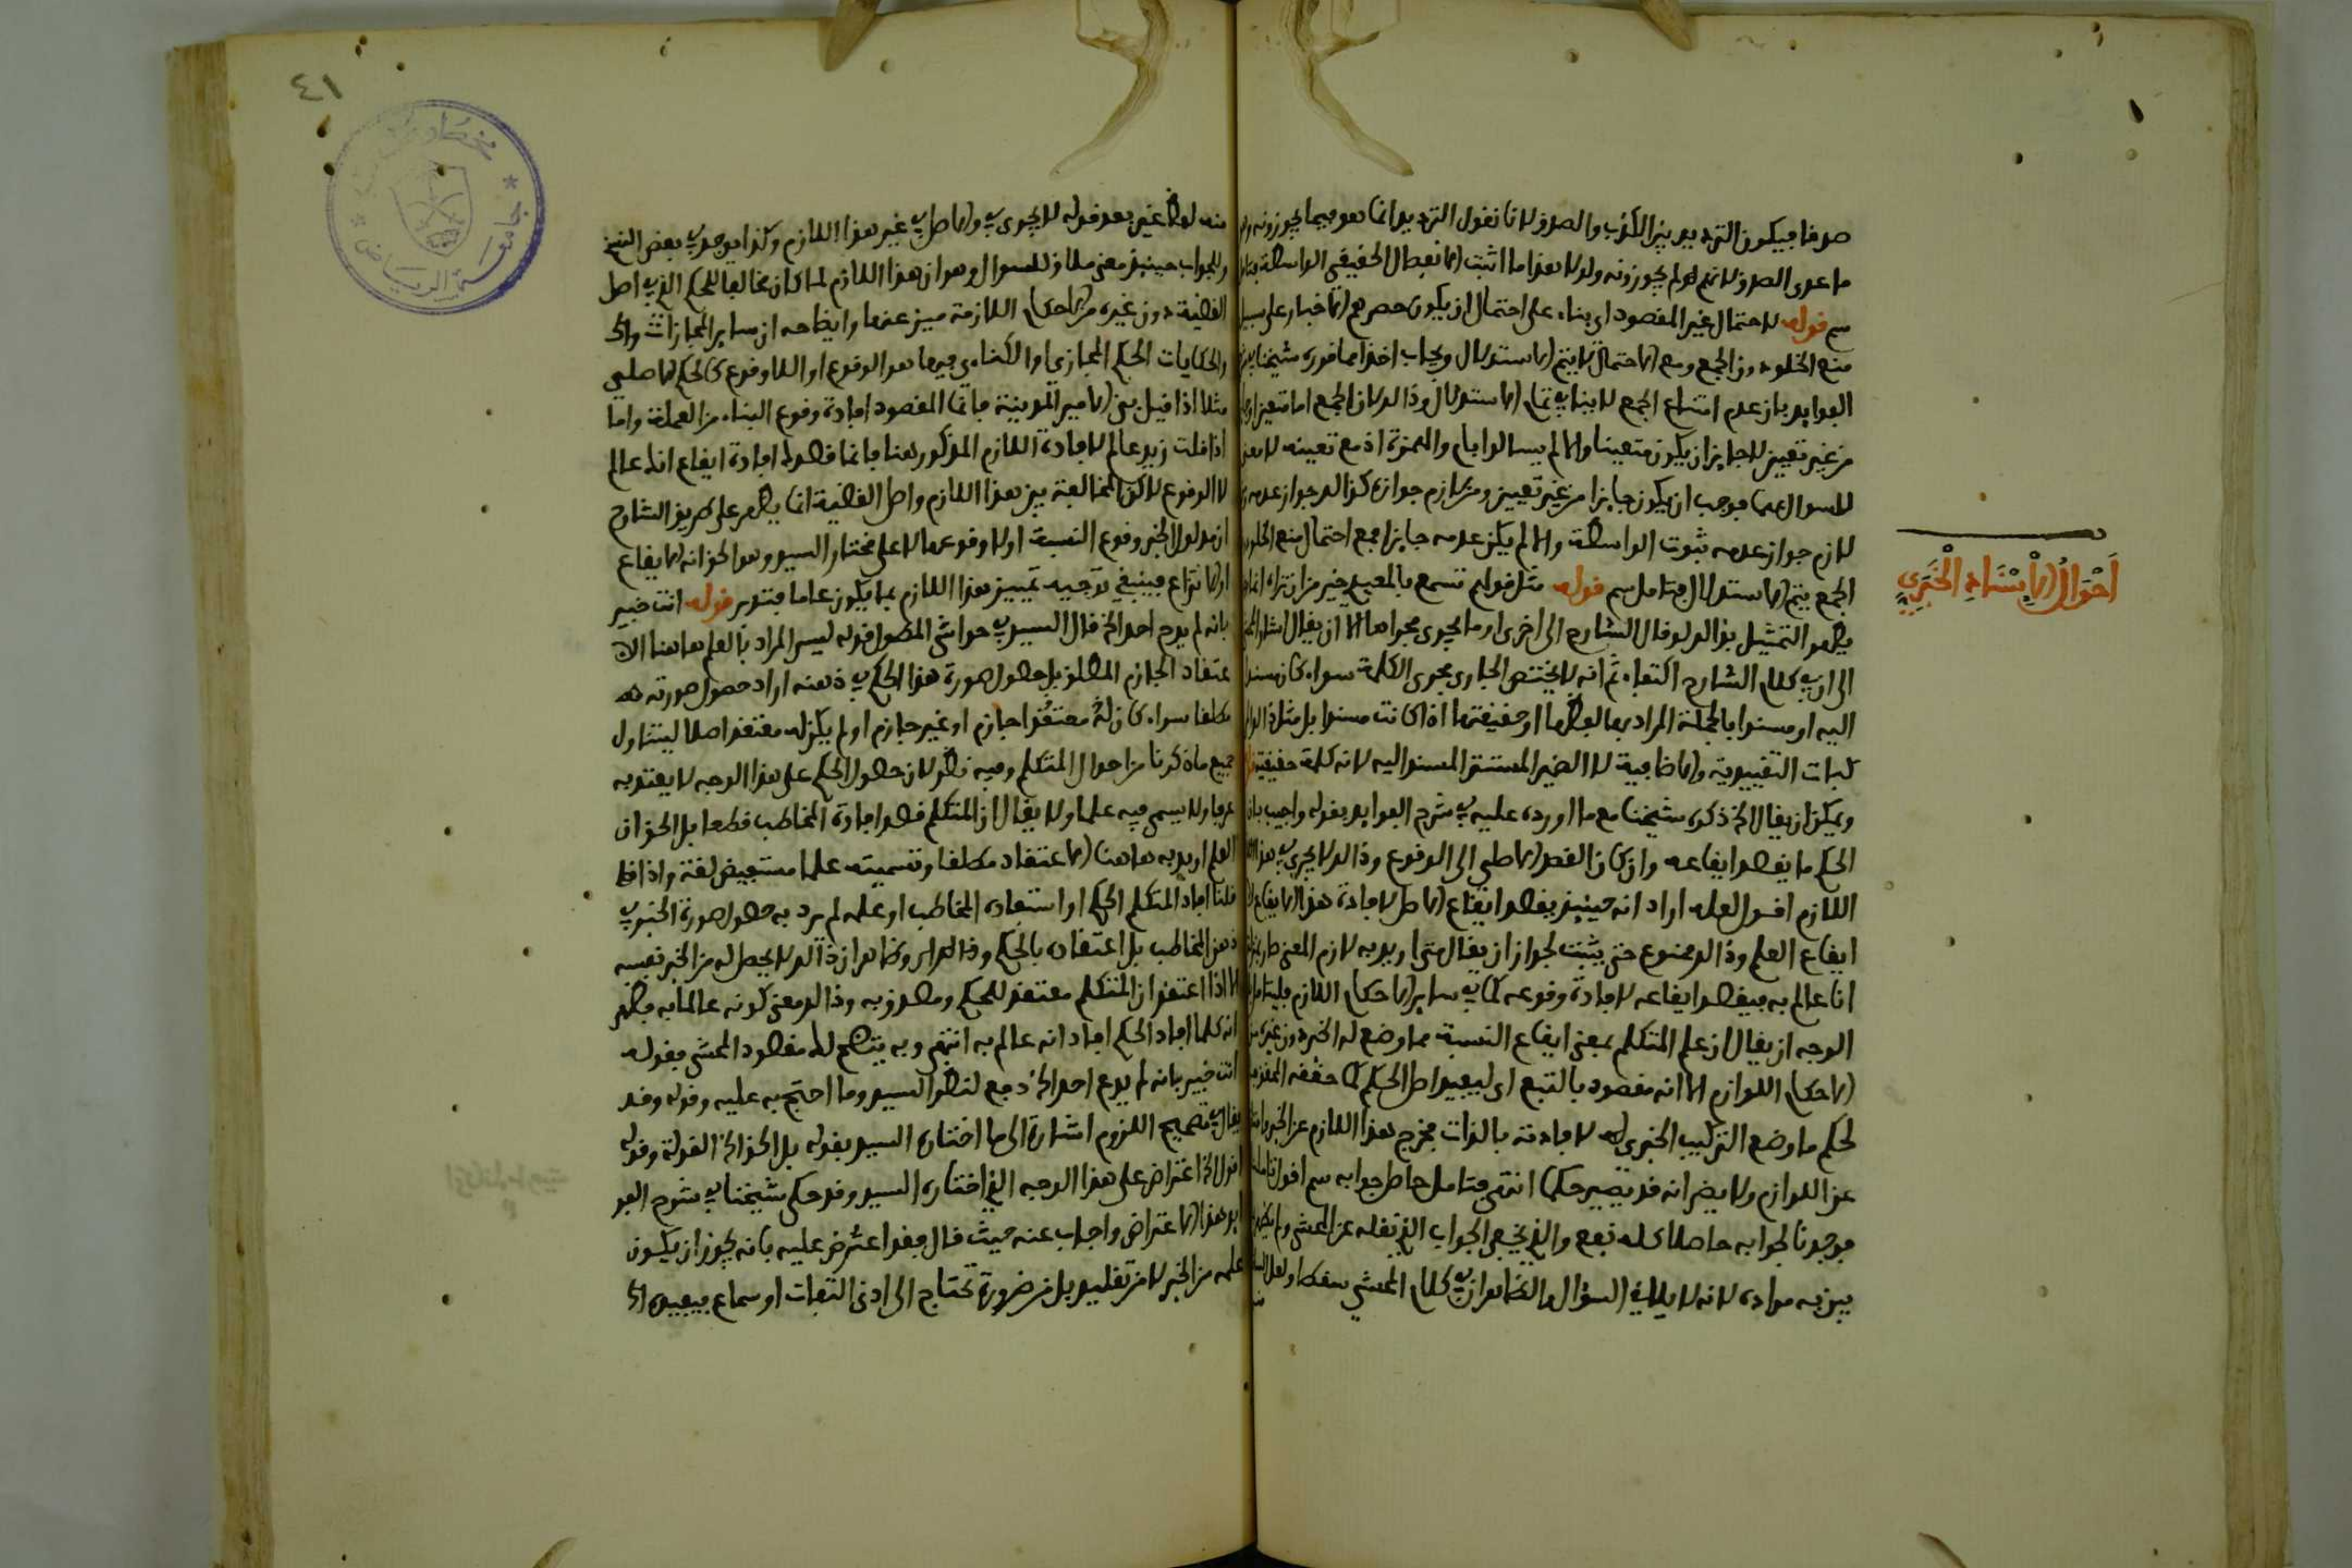 صدقا فيكون الترديد بين الكذب والصدق لانا نقول الترديد انما هو فيما يجوزونه
ما عدى الصدق لانهم لم يجوزونه ولولا هذا ما اثبت الانفصال الحقيقي الواسطة
سم قوله لاحتمال غير المقصود اي بناء على احتمال ان يكون حصرهم الاخبار على سبيل
منع الخلو دون الجمع ومع الاحتمال لا يتم الاستدلال ويجاب اخذا مما قرره شيخنا
الفوايد بان عدم امتناع الجمع لا ينافي تمام الاستدلال وذلك لان الجمع اما متعين او
من غير تعيين لا جايز ان يكون متعينا والا لم يسالوا بام والهمزة اذ مع تعينه لا معنى
للسوال عنهما فوجب ان يكون جايزا من غير تعيين ومن لازم جوازه كذلك جواز عدمه
لازم جواز عدمه ثبوت الواسطة والا لم يكن عدمه جايزا فمع احتمال منع الخلو
الجمع يتم الاستدلال فتامل سم قوله مثل قولهم تسمع بالمعيدي خير من ان تراه
يظهر التمثيل بذلك لو قال الشارح الى اخرى او ما يجري مجراها الا ان يقال
الى ان في كلام الشارح اكتفاء ثم انه لا يختص الجاري مجرى الكلمة سواء كان مسندا
اليه او مسندا بالجملة المراد بها لفظها او حقيقتها اذا كانت مسندا بل مثل ذلك
كبات التقييدية والاضافية لا الضمير المستتر المسند اليه لانه كلمة حقيقة
ويمكن ان يقال الخ ذكره شيخنا مع ما اورده عليه في شرح الفوايد بقوله واجيب بان
الحكم ما يقصد ايقاعه وان كان القصد الاصلي الى الوقوع وذلك لا يجري في هذا
اللازم اقول لعله اراد انه حينئذ يقصد ايقاع الاصل لافادة هذا الايقاع
ايقاع العلم وذلك ممنوع حتى يثبت لجواز ان يقال متى اريد به لازم المعنى صار
انا عالم به فيقصد ايقاعه لافادة وقوعه كما في ساير الاحكام اللازم فليتامل
الوجه ان يقال ان علم المتكلم بمعنى ايقاع النسبة مما وضع له الخبر دون غيره من
الاحكام اللوازم الا انه مقصود بالتبع اي ليفيد اصل الحكم كما حققه
لحكم ما وضع التركيب الخبري له لافادته بالذات فخرج هذا اللازم عن الخبر
عن اللوازم ولا يضر انه قد يصير حكما انتهى فتامل حاصل جوابه سم اقول تاملنا
فوجدنا لجوابه حاصلا كله نفع والذي يخص الجواب الذي نقله عن المحشي
بين به مراده لانه لا يلاقي السؤال والظاهر ان في كلام المحشي سقطا ولعل
احوال الاسناد الخبري
٤١
منه لفظ غير بعد قوله لا يجري في والاصل في غير هذا اللازم وكذا يوجد في بعض النسخ
وللجواب حينئذ معنى ملاق للسوال وهو ان هذا اللازم لما كان مخالفا للحكم الذي في اصل
القضية دون غيره من الاحكام اللازمة ميز عنها وايضاحه ان ساير المجازات
والكنايات الحكم المجازي او الكناءي فيها هو الوقوع او اللاوقوع كالحكم الاصلي
مثلا اذا قيل بنى الامير المدينة فانما المقصود افادة وقوع البناء من العملة واما
اذا قلت زيد عالم لافادة اللازم المذكور هنا فانما قصدك افادة ايقاع انك عالم
لا الوقوع لكن المخالفة بين هذا اللازم واصل القضية انما يظهر على طريق الشارح
ان مدلول الخبر وقوع النسبة او لا وقوعها لا على مختار السيد وهو الحق انه الايقاع
او الانتزاع فينبغي توجيه تمييز هذا اللازم بما يكون عاما فتدبر قوله انت خبير
بانه لم يدع احد الخ قال السيد في حواشي المطول قوله ليس المراد بالعلم هاهنا الا
عتقاد الجازم المطلق بل حصول صورة هذا الحكم في ذهنه اراد حصول صورته له
مطلقا سواء كان له معتقدا جازم او غير جازم او لم يكن له معتقدا اصلا ليتناول
جميع ما ذكرنا من احوال المتكلم وفيه نظر لان حصول الحكم على هذا الوجه لا يعتد به
عرفا ولا يسمى فيه علما ولا يقال ان المتكلم قصد افادة المخاطب قطعا بل الحق ان
العلم اريد به هاهنا الاعتقاد مطلقا وتسميته علما مستفيض لغة واذا
قلنا افاد المتكلم الحكم او استفاده المخاطب او علمه لم يرد به حصول صورة الخبر في
ذهن المخاطب بل اعتقاده بالحكم وظاهر ان ذلك لا يحصل له من الخبر نفسه
الا اذا اعتقد ان المتكلم معتقد للحكم ومصدق به وذلك معنى كونه عالما به فظهر
انه كلما افاد الحكم افاد انه عالم به انتهى وبه يتضح لك مقصود المحشي بقوله
انت خبير بانه لم يدع احد الخ دفع لنظر السيد وما احتج به عليه وقوله وقد
يقال في تصحيح اللزوم اشارة الى ما اختاره السيد بقوله بل الحق الخ القولة وقوله
اقول الخ اعتراض على هذا الوجه الذي اختاره السيد وقد حكى شيخنا في شرح الفو
ايد هذا الاعتراض واجاب عنه حيث قال فقد اعترض عليه بانه يجوز ان يكون
علمه من الخبر لا من تقليد بل من ضرورة تحتاج الى ادنى التفات او سماع فيفيد
جامعة الرياض